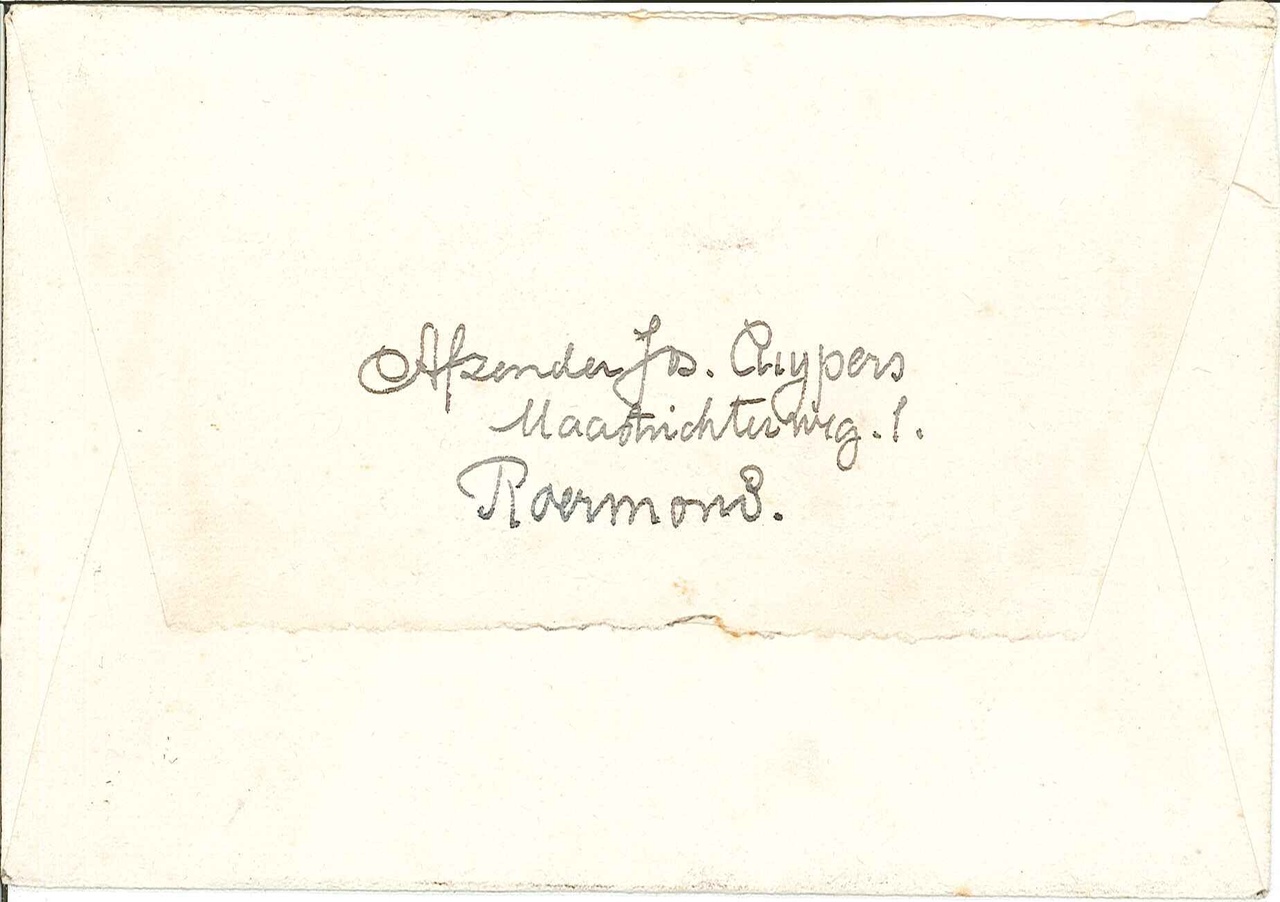 Afzender Jos. Cuypers
Maastrichterweg. 1.
Roermond.